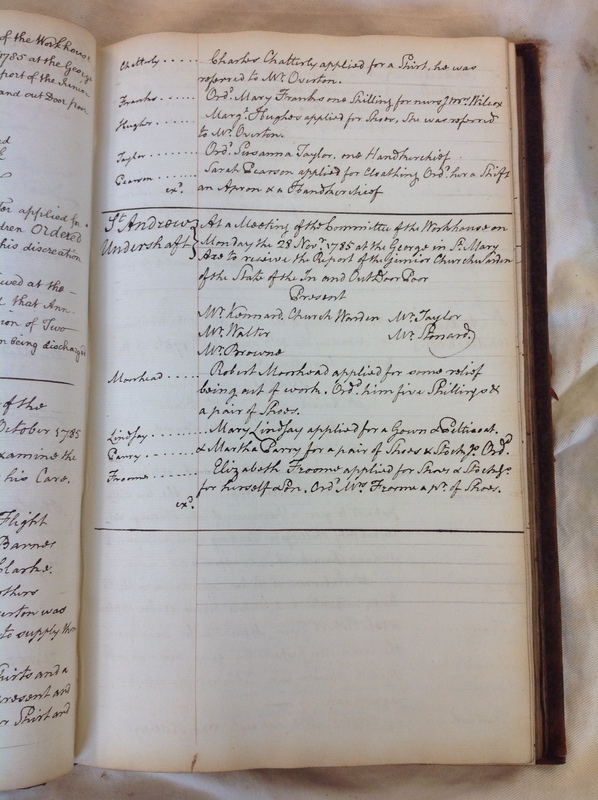 of the Workhouse
1785 at the George
port of the Junior
and out Door poor
for applied for
dren Ordered
his discreation
that Ann
ion of Two
n being discharged
of the
October 1785
xamine the
his Care.
Flight
Barnes
Clarke.
others
verton was
to supply them
Shirts and a
present and
r Shirt and
Chatterly ...... Charles Chatterly applied for a Shirt, he was
referred to Mr. Overton.
Franks ...... Ord.d Mary Franks one Shilling for nursg Mrs. Wilcox
Hughes ...... Margt. Hughes applied for Shoes, She was referred
to Mr. Overton.
Taylor ...... Ord.d Susanna Taylor, one Handkerchief
Pearson ...... Sarah Pearson applied for Cloathing Ord.d her a Shift
ex.d an Apron & a Handkerchief
St. Andrew } At a Meeting of the Committee of the Workhouse on
Undershaft } Monday the 28 Novr. 1785 at the George in St. Mary
Axe to receive the Report of the Junior Churchwarden
of the State of the In and Out Door Poor
Present
Mr. Kennard, Church Warden Mr. Taylor
Mr. Walter Mr. Stonard
Mr. Browne
Moorhead ..... Robert Moorhead applied for some relief
being out of work. Ord.d him five Shillings &
a pair of Shoes.
Lindsay ....... Mary Lindsay applied for a Gown & Petticoat.
Parry ....... & Martha Parry for a pair of Shoes & Stockgs. Ord.d
Froome ....... Elizabeth Froome applied for Shoes & Stockgs.
for herself & Son. Ord.d Mrs. Froome a pr. of Shoes.
ex.d